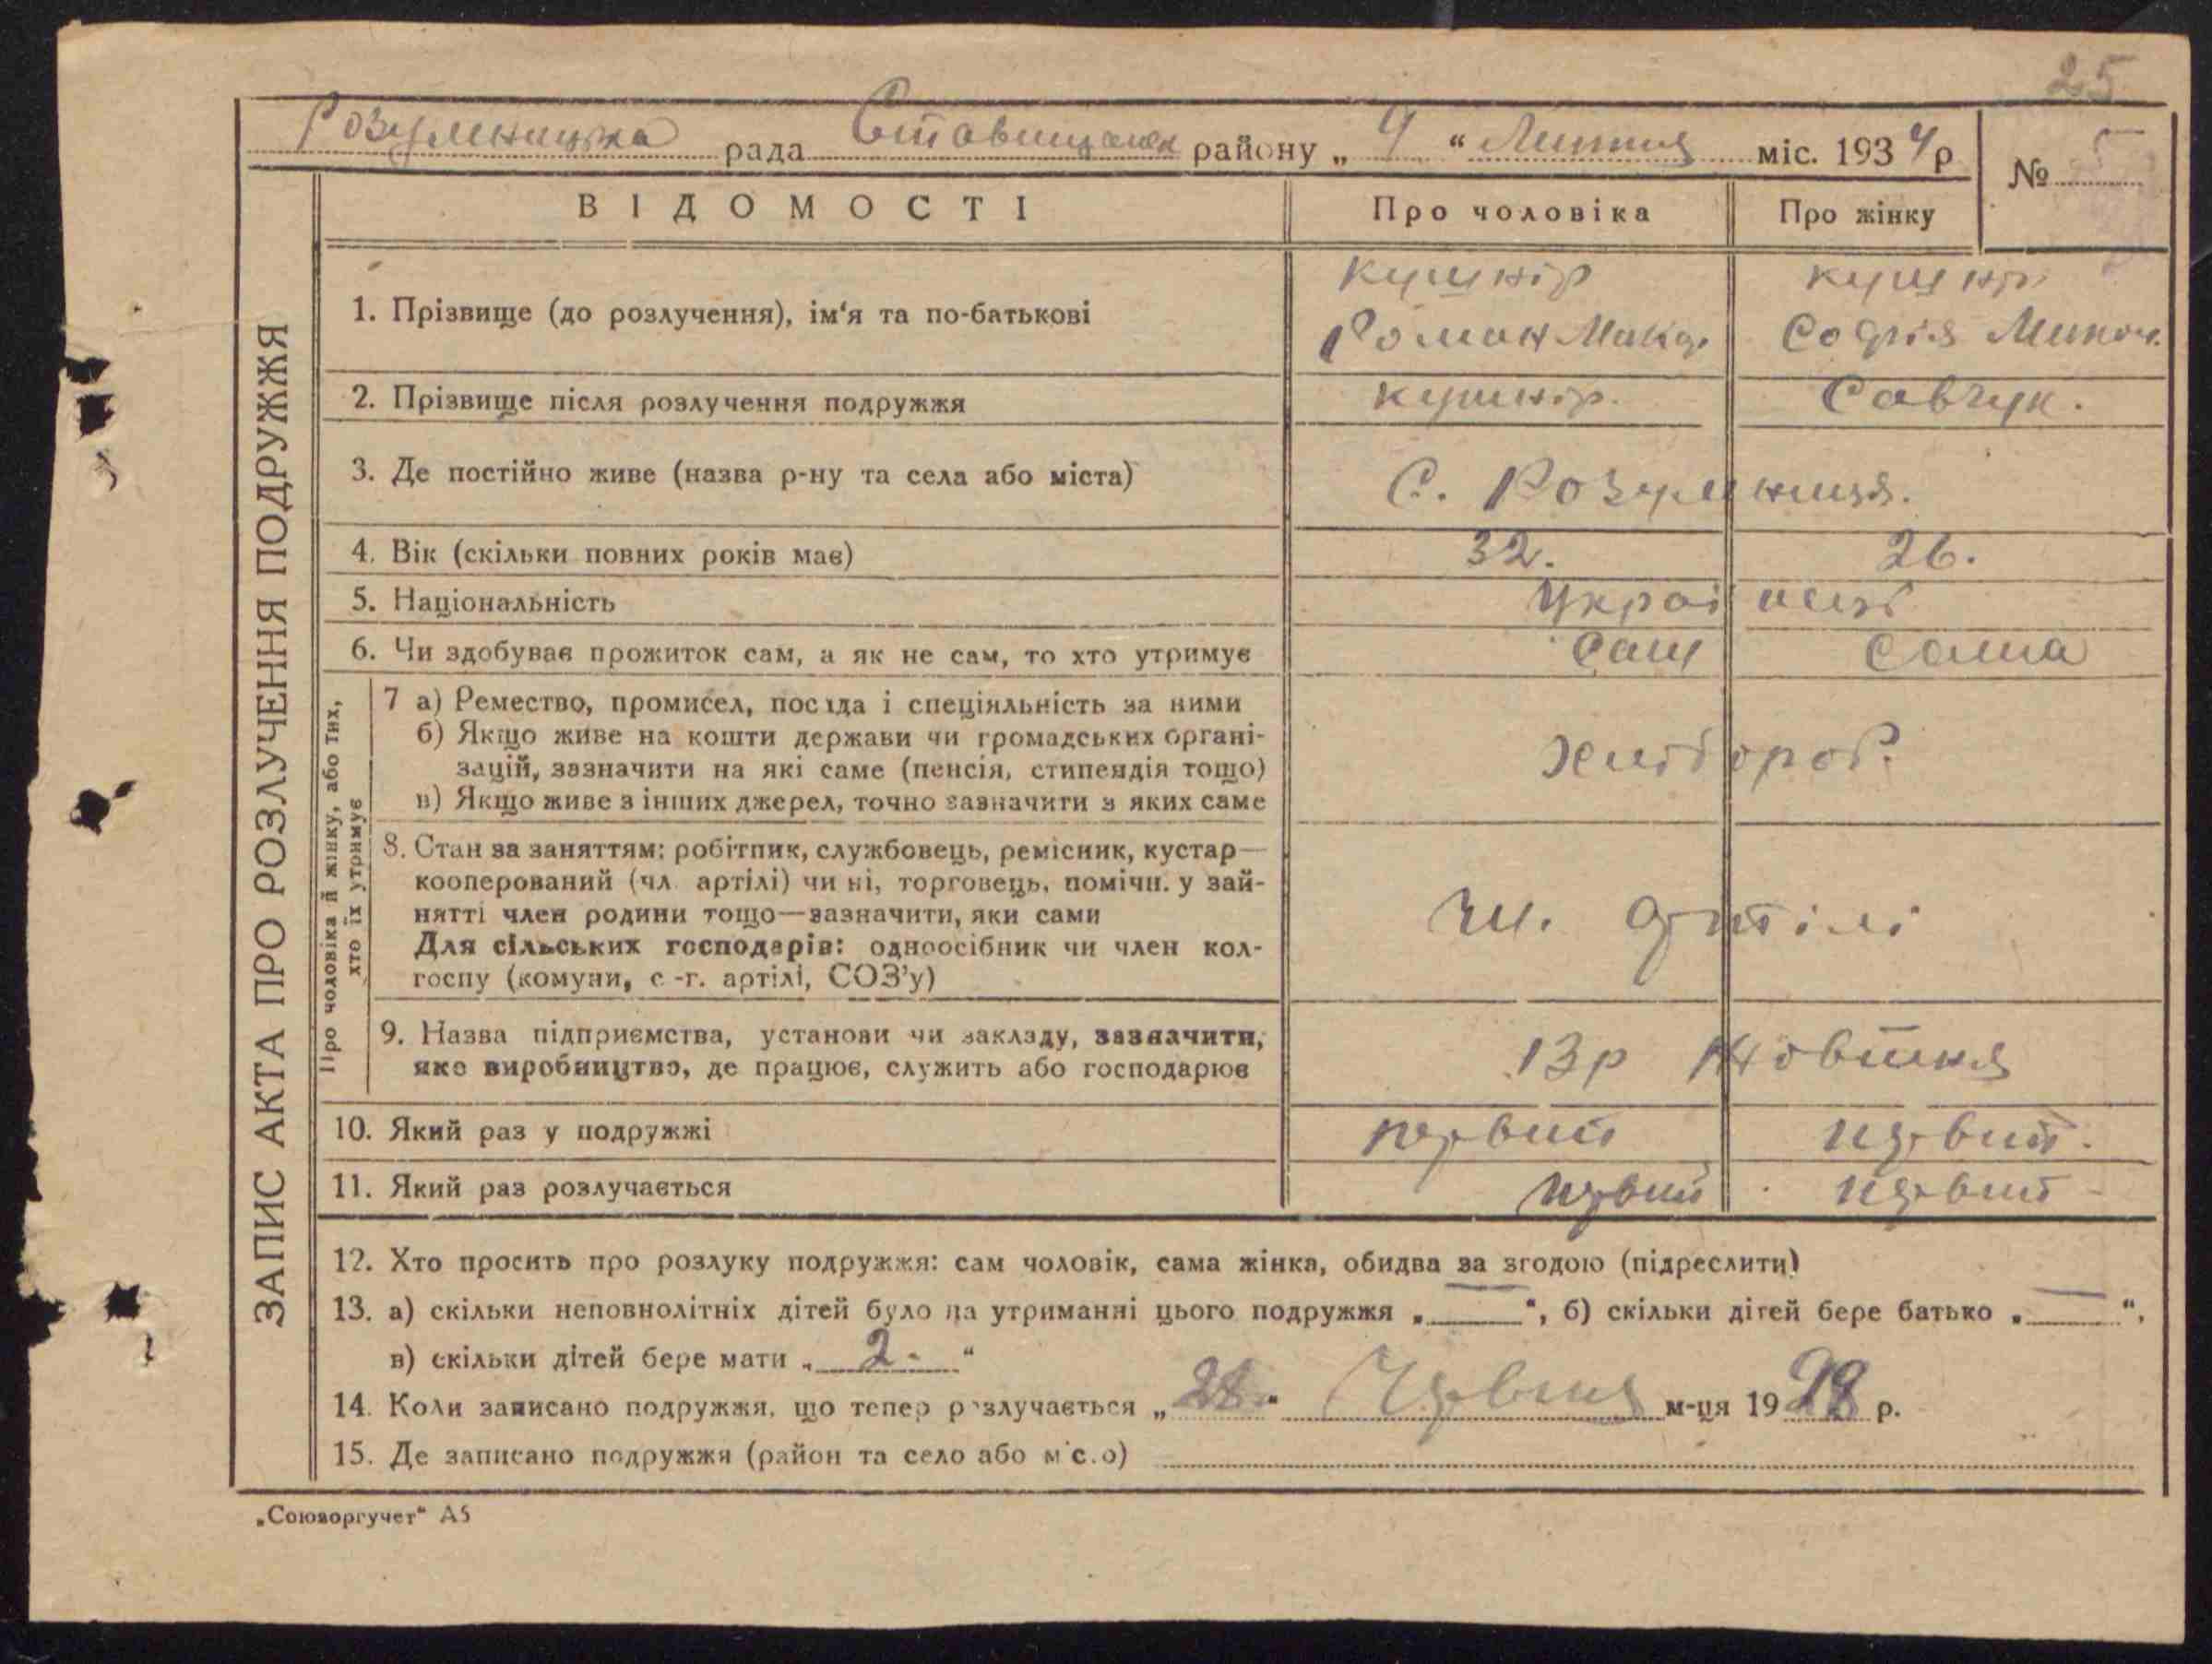 25
Розумницька рада Ставищанськ району „ 9 “ Липня міс. 1934 р
№ 5
ВІДОМОСТІ
Про чоловіка
Про жінку
ЗАПИС АКТА ПРО РОЗЛУЧЕННЯ ПОДРУЖЖЯ
1. Прізвище (до розлучення), ім‘я та по-батькові
кушнір
Роман Макар.
кушнір
Софія
2. Прізвище після розлучення подружжя
кушнір.
Савчук.
3. Де постійно живе (назва р-ну та села або міста)
С. Розумниця.
4. Вік (скільки повних років має)
32.
26.
5. Національність
Українці
6. Чи здобуває прожиток сам, а як не сам, то хто утримує
Сам
Сама
Про чоловіка й жінку, або тих,
хто їх утримує
7 а) Ремество, промисел, посада і спеціяльність за ними
б) Якщо живе на кошти держави чи громадських органі-
зацій, зазначити на які саме (пенсія, стипендія тощо)
в) Якщо живе з інших джерел, точно зазначити з яких саме
Хлібороб.
8. Стан за заняттям: робітник, службовець, ремісник, кустар—
кооперований (чл. артілі) чи ні, торговець, помічн. у зай-
нятті член родини тощо—зазначити, яки сами
Для сільських господарів: одноосібник чи член кол-
госпу (комуни, с.-г. артілі, СОЗ’у)
чл. артілі
9. Назва підприємства, установи чи закладу, зазначити,
яке виробництво, де працює, служить або господарює
13 р Жовтня
10. Який раз у подружжі
первий
первий.
11. Який раз розлучається
первий
первий
12. Хто просить про розлуку подружжя: сам чоловік, сама жінка, обидва за згодою (підреслити)
13. а) скільки неповнолітніх дітей було на утриманні цього подружжя „ — “, б) скільки дітей бере батько „ — “,
в) скільки дітей бере мати „ 2. “
14. Коли записано подружжя, що тепер розлучається „ 28 “ Червня м-ця 1928 р.
15. Де записано подружжя (район та село або місто)
„Союзоргучет“ А5